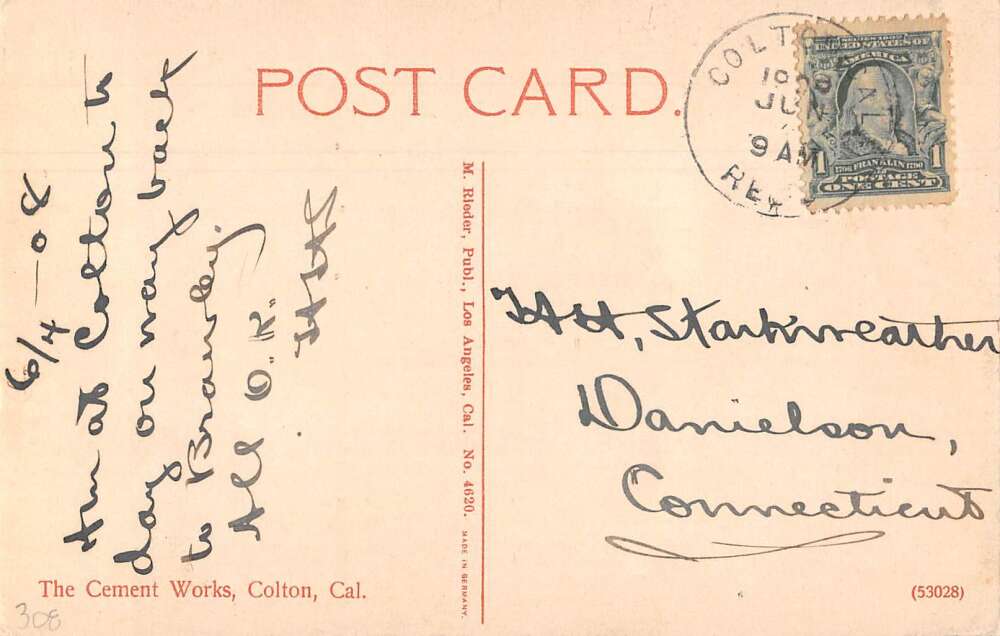 POST CARD.
COLTON CAL.
1908
JUN
9 AM
REC'D
SERIES 1902
UNITED STATES OF
AMERICA
1 1706 FRANKLIN 1790 1
POSTAGE
ONE CENT
6/4 — 08
Am at Colton to
day on way back
to Brawley.
All O.K.
HAS
M. Rieder, Publ., Los Angeles, Cal. No. 4620. MADE IN GERMANY.
Starkweather
Danielson,
Connecticut
The Cement Works, Colton, Cal.
(53028)
308